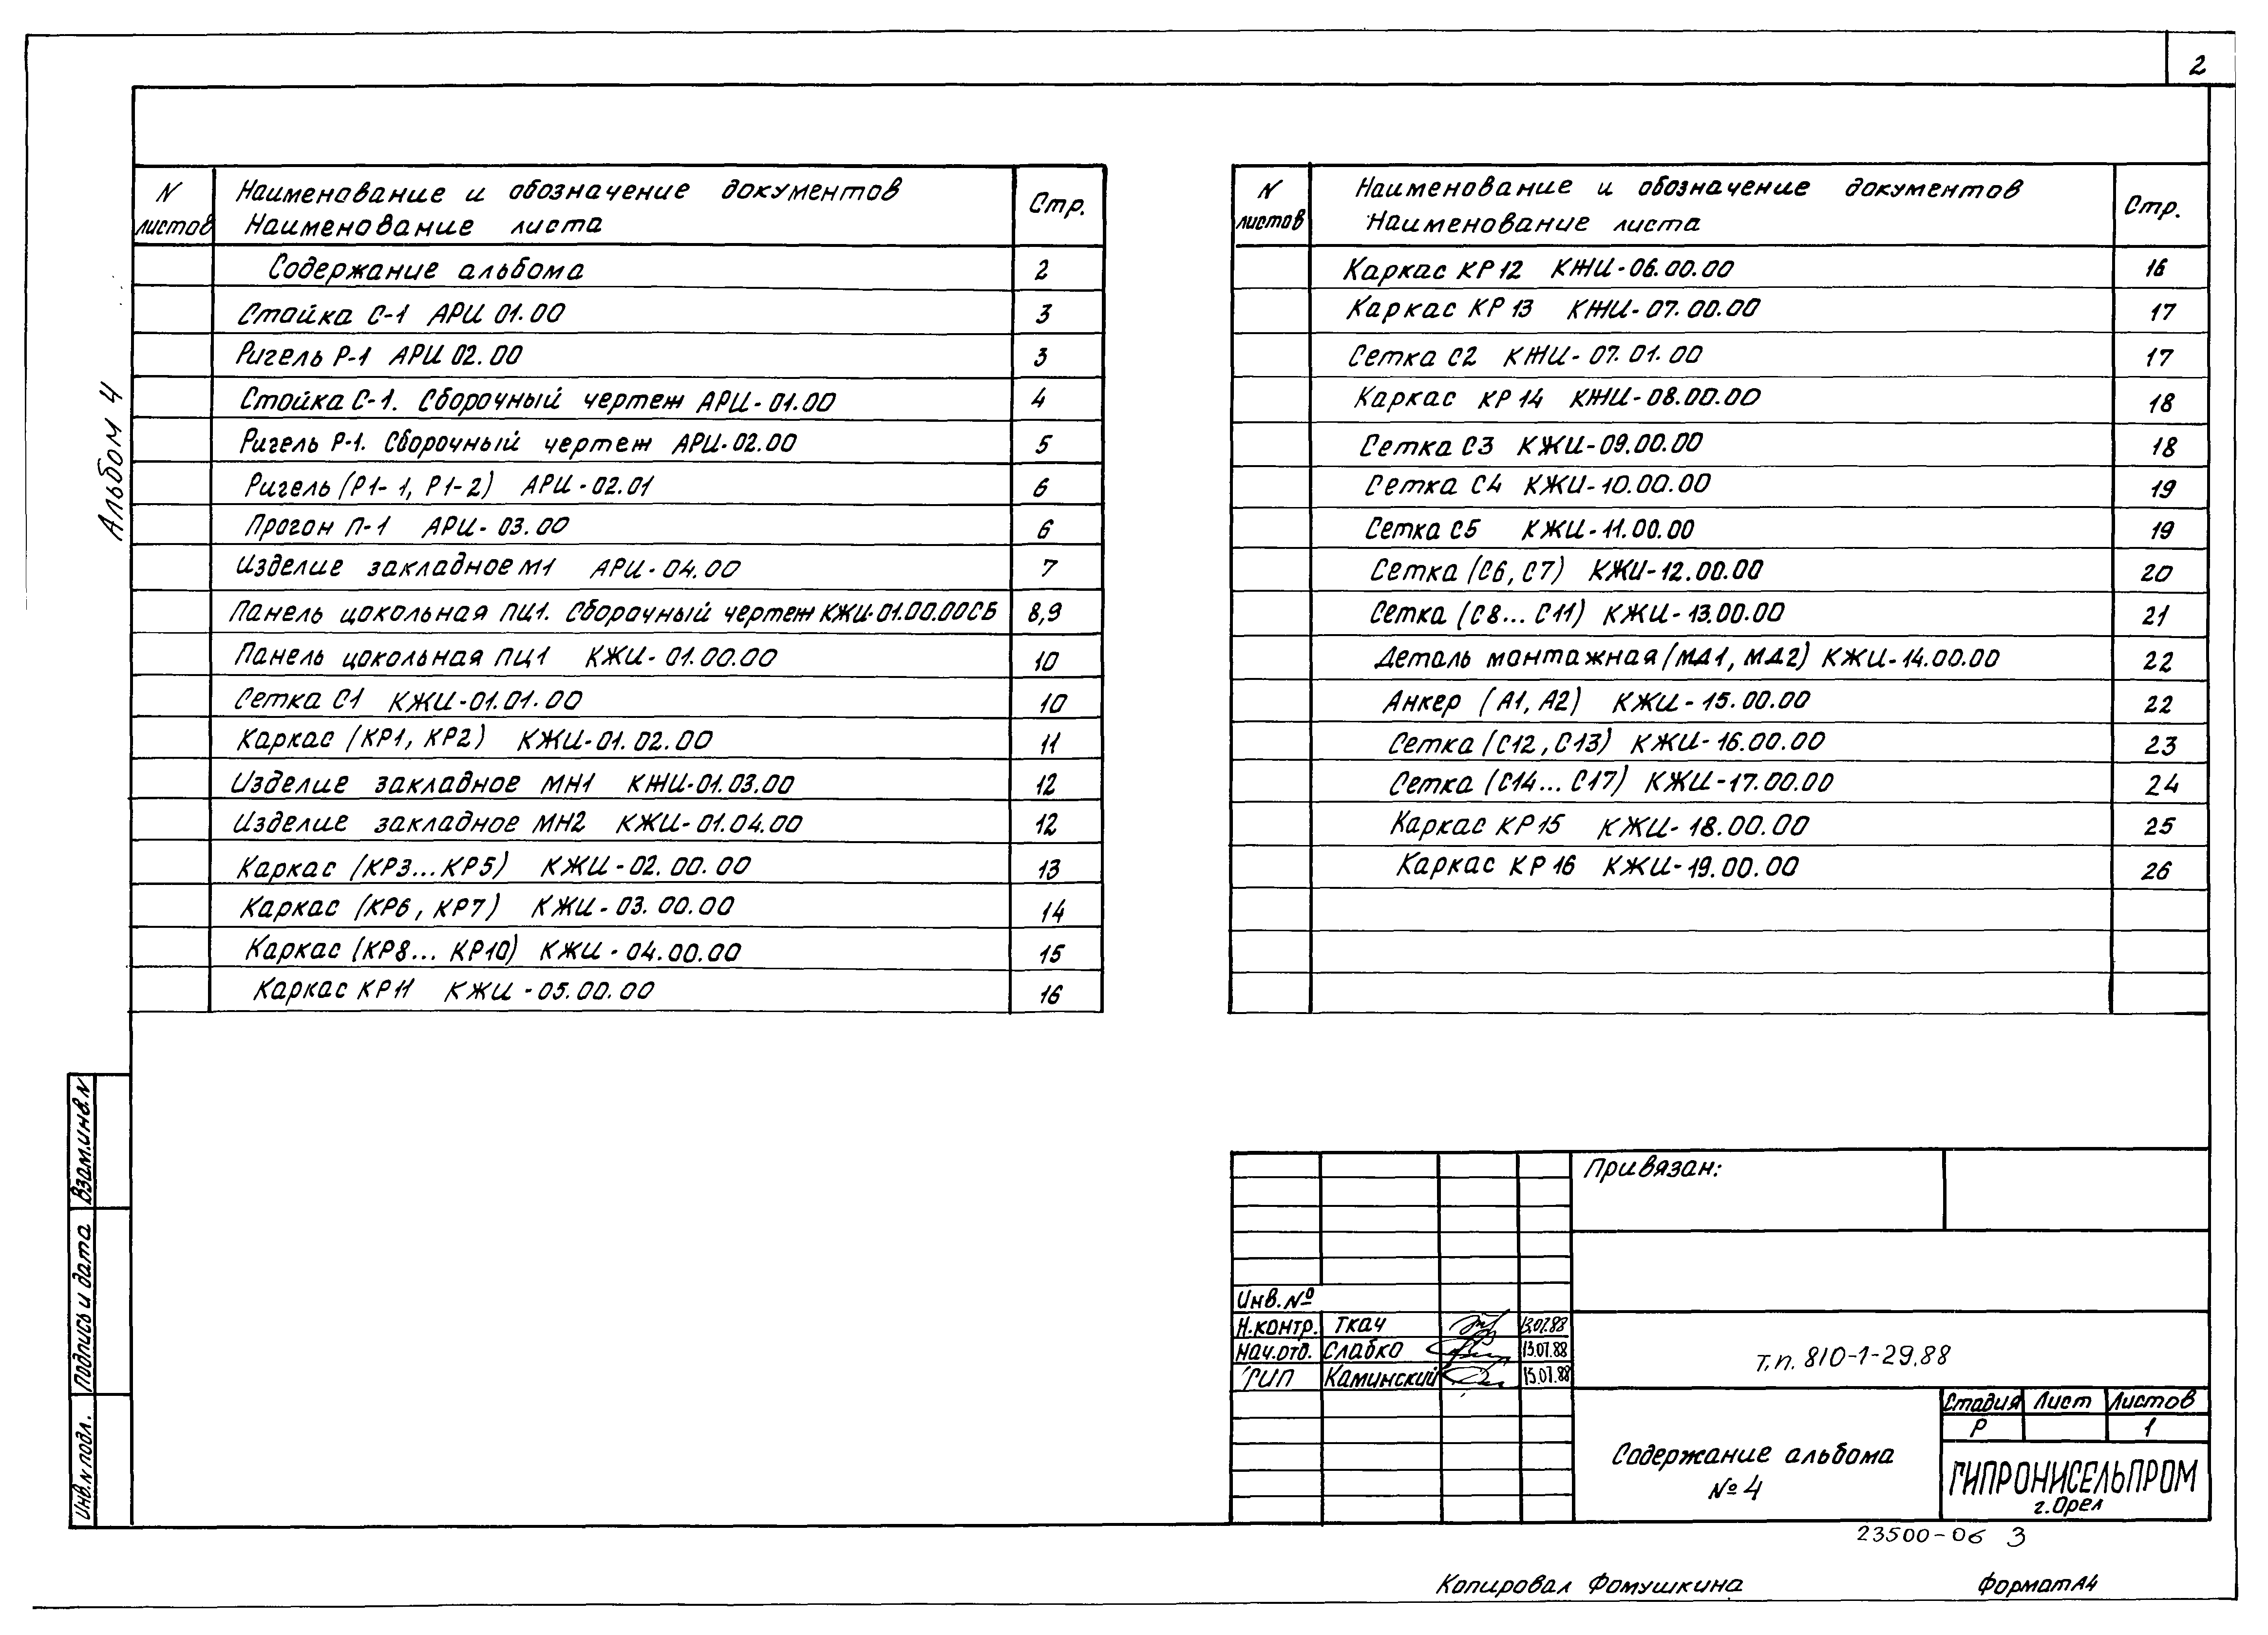 2
Альбом 4
N листов
Наименование и обозначение документов
Наименование листа
Стр.
Содержание альбома 2
Стойка С-1 АРИ 01.00 3
Ригель Р-1 АРИ 02.00 3
Стойка С-1. Сборочный чертеж АРИ-01.00 4
Ригель Р-1. Сборочный чертеж АРИ-02.00 5
Ригель (Р1-1, Р1-2) АРИ-02.01 6
Прогон П-1 АРИ-03.00 6
Изделие закладное М1 АРИ-04.00 7
Панель цокольная ПЦ1. Сборочный чертеж КЖИ-01.00.00СБ 8,9
Панель цокольная ПЦ1 КЖИ-01.00.00 10
Сетка С1 КЖИ-01.01.00 10
Каркас (КР1, КР2) КЖИ-01.02.00 11
Изделие закладное МН1 КЖИ-01.03.00 12
Изделие закладное МН2 КЖИ-01.04.00 12
Каркас (КР3...КР5) КЖИ-02.00.00 13
Каркас (КР6, КР7) КЖИ-03.00.00 14
Каркас (КР8... КР10) КЖИ-04.00.00 15
Каркас КР11 КЖИ-05.00.00 16
N листов
Наименование и обозначение документов
Наименование листа
Стр.
Каркас КР12 КЖИ-06.00.00 16
Каркас КР13 КЖИ-07.00.00 17
Сетка С2 КЖИ-07.01.00 17
Каркас КР14 КЖИ-08.00.00 18
Сетка С3 КЖИ-09.00.00 18
Сетка С4 КЖИ-10.00.00 19
Сетка С5 КЖИ-11.00.00 19
Сетка (С6, С7) КЖИ-12.00.00 20
Сетка (С8... С11) КЖИ-13.00.00 21
Деталь монтажная (МД1, МД2) КЖИ-14.00.00 22
Анкер (А1, А2) КЖИ-15.00.00 22
Сетка (С12, С13) КЖИ-16.00.00 23
Сетка (С14... С17) КЖИ-17.00.00 24
Каркас КР15 КЖИ-18.00.00 25
Каркас КР16 КЖИ-19.00.00 26
Взам.инв.N
Подпись и дата
Инв.N подл.
Привязан:
Инв. №
Н.контр. Ткач 13.07.88
Нач.отд. Слабко 13.07.88
ГИП Каминский 13.07.88
т.п. 810-1-29.88
Содержание альбома
№ 4
Стадия Лист Листов
Р 1
ГИПРОНИСЕЛЬПРОМ
г.Орел
23500-06 3
Копировал Фомушкина
Формат А4